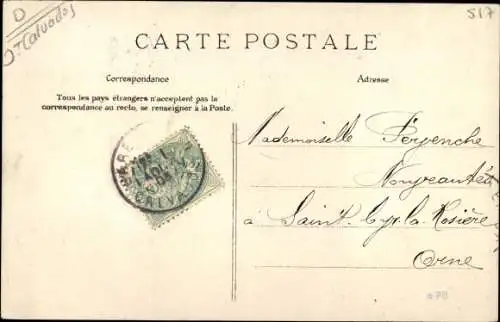 D
Calvados
517
CARTE POSTALE
Correspondance
Adresse
Tous les pays étrangers n'acceptent pas la
correspondance au recto, se renseigner à la Poste.
CALVADOS
Mademoiselle Pervenche
Nouveautés
à Saint. Cyr. la. Rosière
Orne